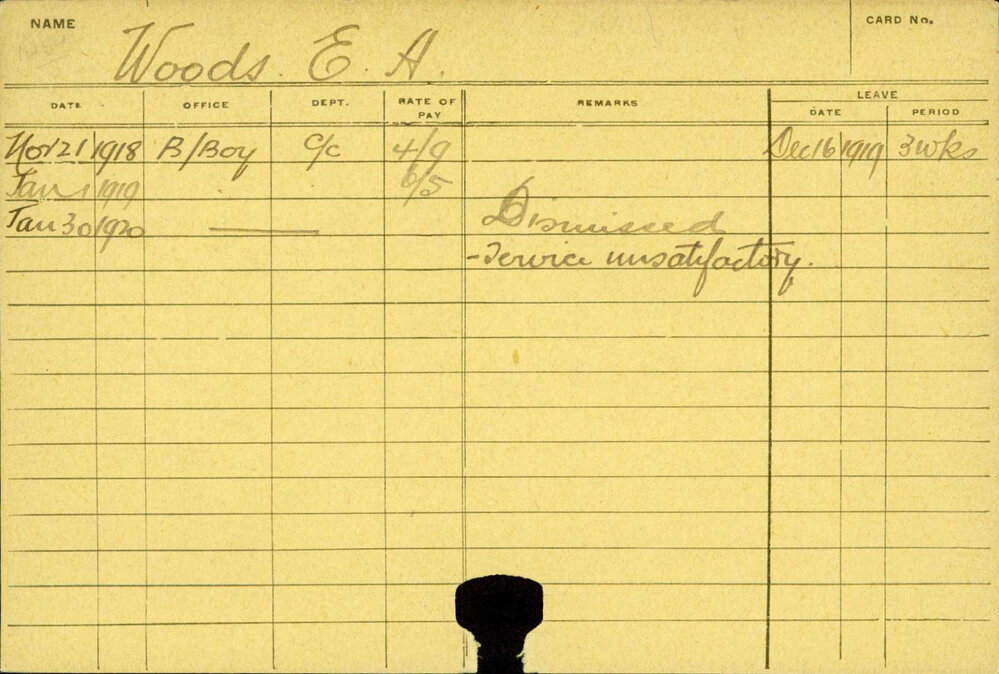 NAME Woods. E. A. CARD No.
DATE OFFICE DEPT. RATE OF PAY REMARKS LEAVE
DATE PERIOD
Nov 21 1918 B/Boy C/C 4/9 Dec 16 1919 3 wks
Jan 1 1919 6/5
Jan 30 1920 Dismissed
- Service unsatisfactory.